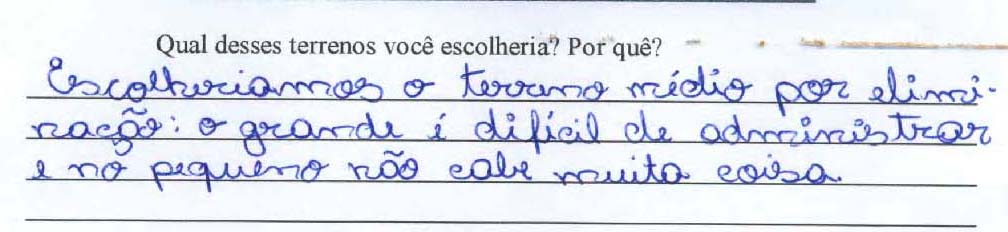 Qual desses terrenos você escolheria? Por quê?
Escolheriamos o terreno médio por elimi-
nação: o grande é difícil de administrar
e no pequeno não cabe muita coisa.